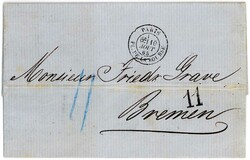 PARIS
Monsieur Friedr Grave
11
Bremen